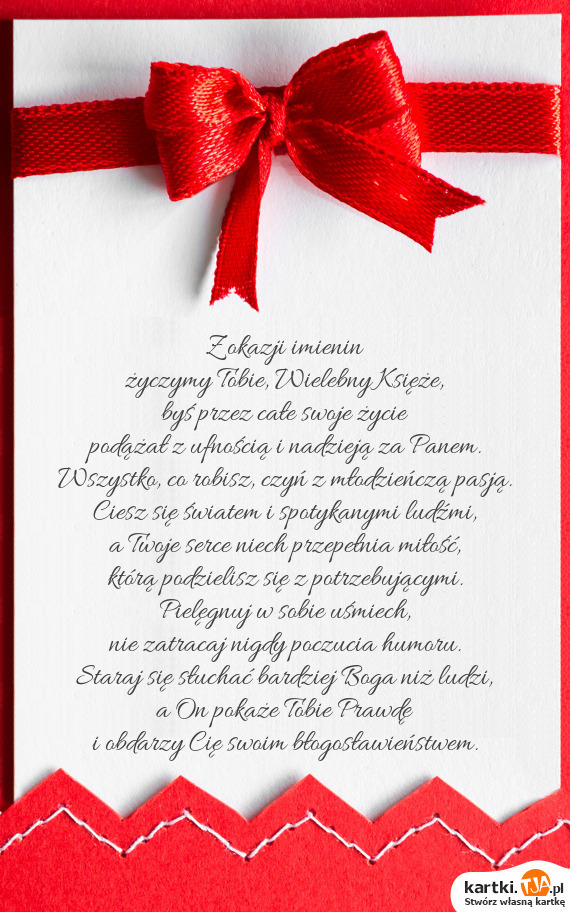 Z okazji imienin
życzymy Tobie, Wielebny Księże,
byś przez całe swoje życie
podążał z ufnością i nadzieją za Panem.
Wszystko, co robisz, czyń z młodzieńczą pasją.
Ciesz się światem i spotykanymi ludźmi,
a Twoje serce niech przepełnia miłość,
którą podzielisz się z potrzebującymi.
Pielęgnuj w sobie uśmiech,
nie zatracaj nigdy poczucia humoru.
Staraj się słuchać bardziej Boga niż ludzi,
a On pokaże Tobie Prawdę
i obdarzy Cię swoim błogosławieństwem.
kartki.TJA.pl
Stwórz własną kartkę